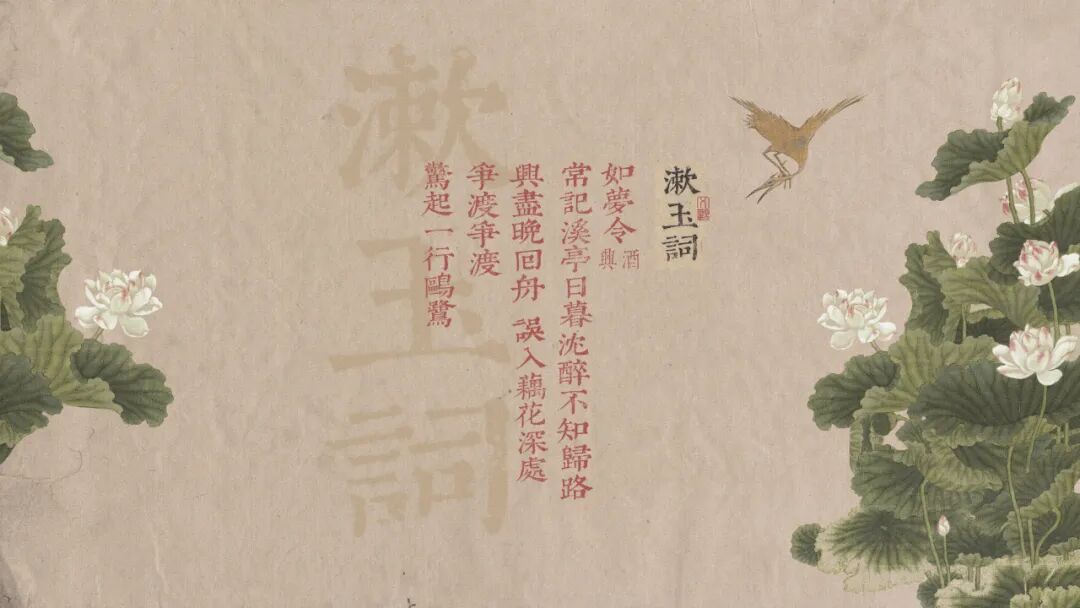 漱玉詞
如夢令
酒興
常記溪亭日暮沈醉不知歸路
興盡晚回舟 誤入藕花深處
爭渡爭渡
驚起一行鷗鷺
漱玉詞